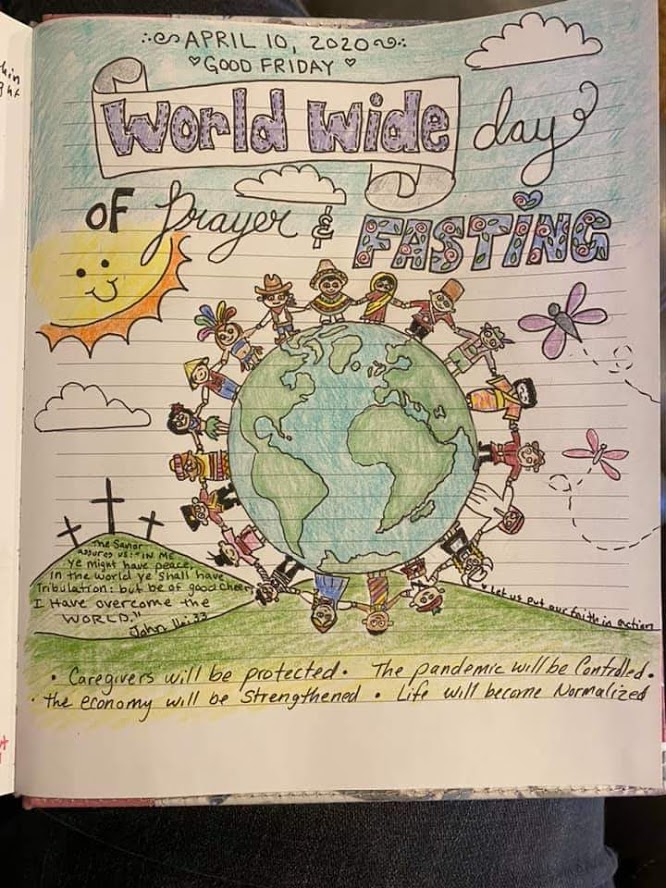 APRIL 10, 2020
GOOD FRIDAY
World Wide day
OF Prayer & FASTING
The Savior
assures us: "IN ME
Ye might have peace,
in the world ye shall have
Tribulation: but be of good cheer;
I Have overcome the
WORLD."
John
Let us put our faith in action
• Caregivers will be protected • The pandemic will be Controlled •
• the economy will be Strengthened • Life will become Normalized